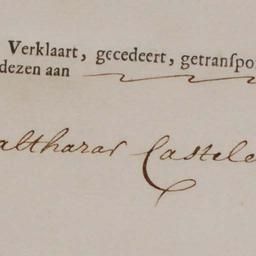 Verklaart, gecedeert, getranspo
dezen aan
althazar Castele